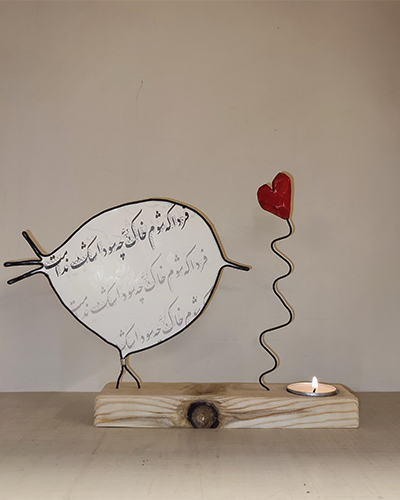 فردا که شوم خاک چه سود اشک ندامت
فردا که شوم خاک چه سود اشک ندامت
فردا که شوم خاک چه سود اشک